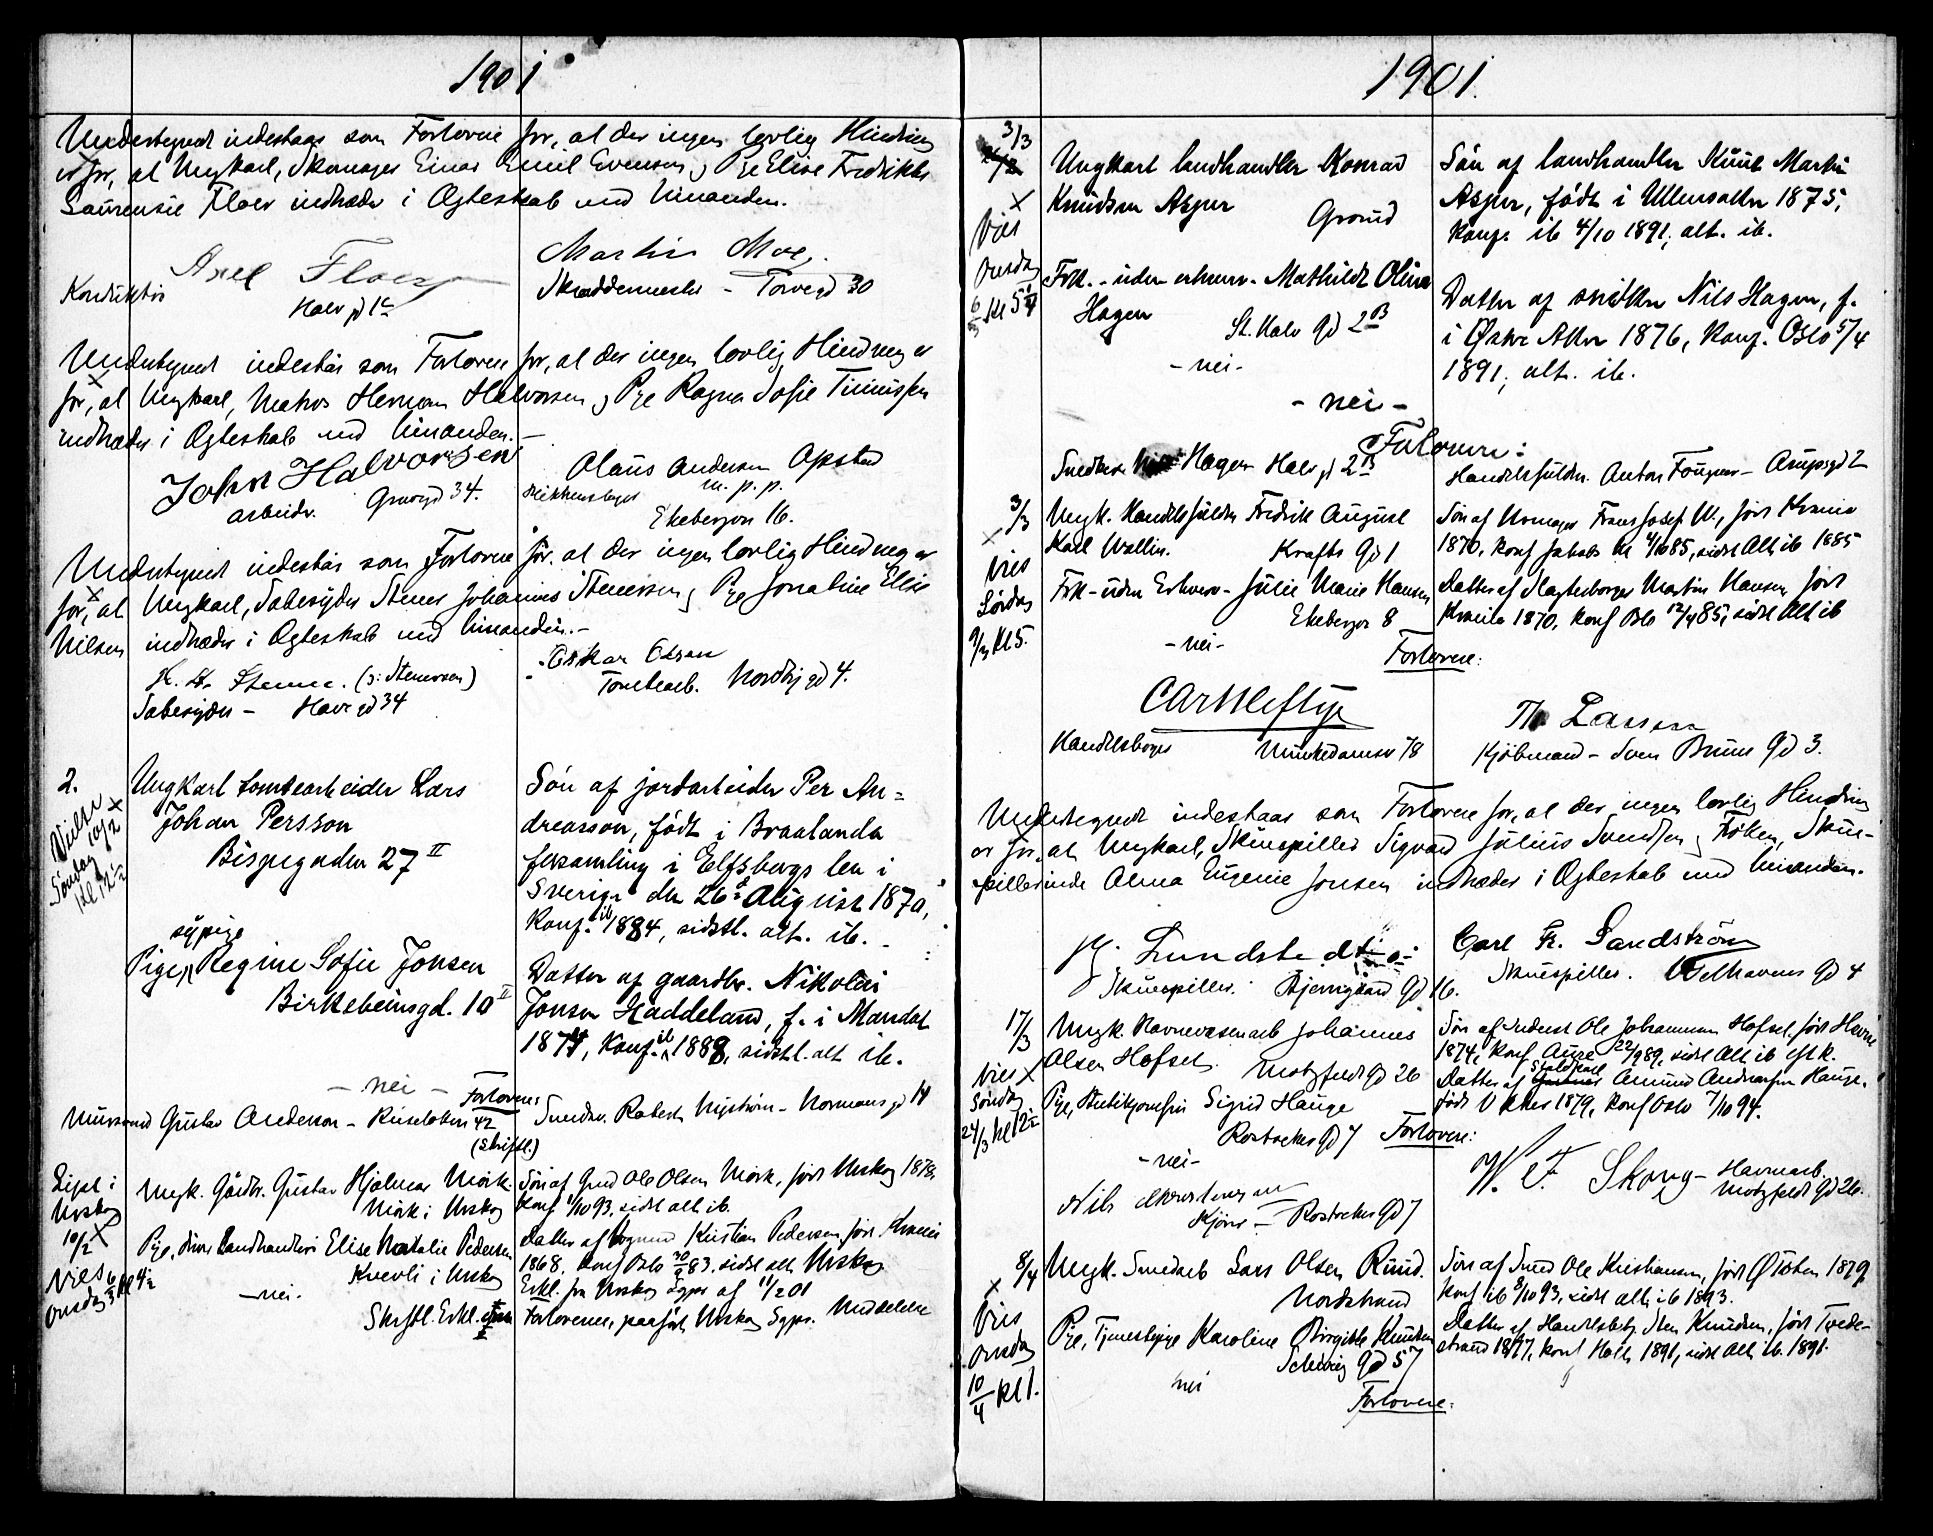 1901
Undertegnede indestaas som Forlovere for, at der ingen lovlig Hindring
er for, at Ungkarl, Skomager Einar Emil Evensen og Pge Elise Fredrikke
Laurensie Floer indtræder i Ægteskab med hinanden.
Axel Floer
Konduktör
Martin Moe
Skræddermester - Torvegd 30
Undertegnede indestår som Forlovere for, at der ingen lovlig Hindring er
for, at Ungkarl, Matros Herman Halvorsen og Pge Ragna Sofie Tinius
indtræder i Ægteskab med hinanden.-
Johan Halvorsen
arbeider. 34.
Olaus Andersen Opsted
m. p. p.
Ekebergvn 16.
Undertegnede indestår som Forlovere for, at der ingen lovlig Hindring er
for, at Ungkarl, Sæbesyder Stener Johannes Stenersen og Pge Jonatine Elise
Nilsen indtræder i Ægteskab med hinanden.-
(o: Stenersen)
Sæbesyder - 34
Oskar Olsen
Tomtearb. gd 4.
2.
Viet
10/2 X
Söndag
Ungkarl tomtearbeider Lars
Johan Persson
Bispegaden 27 II
Sön af jordarbeider Per An=
dreasson, födt i Braalanda
forsamling i Elfsborgs len i
Sverige den 26de August 1870,
konf. ib 1884, sidstl. alt. ib. -
sypige
Pige, Regine Sofie Jonsen
Birkebeinsgd. 10 II
Datter af gaardbr. Nikolai
Jonsen Haddeland, f. i Mandal
1874, konf. ib 1888, sidstl. alt ib.
- nei -
Forlovere:
Murmand Gustav Anderson - Ruselökvn 42
(skriftl.)
Smedsv. Robert Nyström - Normansgd 14
Lyst i
Urskog
10/2 X
Vies
Onsdag 6/3 kl 4½
Ungk. Gårdbr. Gustav Hjalmar Mörk.
Mörk i Urskog
Sön af Gmd Ole Olsen Mörk, født Urskog 1878
konf 1/10 93, sidst alt ib.
Pge, Landhandleri Elise Natalie Pedersen
Kvevli i Urskog
-nei-
Datter af Kristian Pedersen, født Kra
1868, konf Oslo 30/9 83, sidst alt Urskog
Erkl. fra Urskog Sgpr af 11/2 01
Skriftl. Erkl.
Forlovere, paaført Urskog Sgpr. Meddelelse
1901.
3/3
X
Vies
Onsdag
6/3 kl 5½
Ungkarl landhandler Konrad
Knudsen Asper
Grorud
Sön af landhandler Knut Martin
Asper, födt i Ullensaker 1875,
konf. ib 4/10 1891, alt. ib.
Frk. - uden erhverv - Mathilde Olina
Hagen
St. Halv gd 2 B
- nei -
Datter af snedker Nils Hagen, f.
i Østre Aker 1876, konf. Oslo 5/4
1891, alt. ib.
- nei -
Forlovere:
Snedker Hagen Halv gd 2 B
Handelsfuldm. Anton - gd 2
3/3
X
Vies
Lördag
9/3 kl 5.
Ungk. Handelsfuldm Fredrik August
Karl Wallin.
Krafts Gd 1
Sön af Urmager Frans Josef W., født Krania
1870, konf Jakobs K 4/10 85, sidst Alt ib 1885
Frk - uden Erhverv - Julie Marie Hansen
Ekebergvn 8
-nei-
Datter af Martin Hansen, født
Krania 1870, konf Oslo 12/4 85, sidst Alt ib
Forlovere:
Handelsborger
Munkedamsv 78
Th. Larsen
Kjöbmand - Sven Bruns Gd 3.
Undertegnede indestaas som Forlovere for, at der ingen lovlig Hindring
er for, at Ungkarl, Skuespiller Sigvard Julius Svendsen og Fröken, Skue-
spillerinde Alma Eugenie Jonsen indtræder i Ægteskab med hinanden.
Lundstedt
Skuespiller. Bjerregaard Gd 16.
Carl Fr. Sandström
Skuespiller. Welhavens Gd 4
17/3
Vies X
Söndag
24/3
Ungk. Havnevæsenarb Johannes
Olsen Hofset.
Motzfeldt Gd 26
Sön af Inderst Ole Johannesen Hofset, født
1874, konf Aure 22/9 89, sidst Alt ib
Pge, Sigrid Hauge
Rostocks Gd 7
-nei-
Staldkarl
Datter af Amund Andreassen Hauge,
födt V Aker 1879, konf Oslo 7/10 94.
Forlovere:
Nils
Kjörer - Rostocks Gd 7
W. F. Skoug - Havnearb
Motzfeldt Gd 26.
8/4
X
Vies
Onsdag
10/4 kl 1.
Ungk. Smedarb Lars Olsen Ruud.
Nordstrand
Sön af Smed Ole Kristiansen, født Ø Toten 1879
konf ib 8/10 93, sidst alt ib 1893.
Pge, Tjenestepige Karoline Birgitte Knudsen
Schweig Gd 57
nei
Datter af Handelsbet. Sten Knudsen, født Tvede-
strand 1877, konf Holt 1891, sidst Alt ib. 1891.
Forlovere: